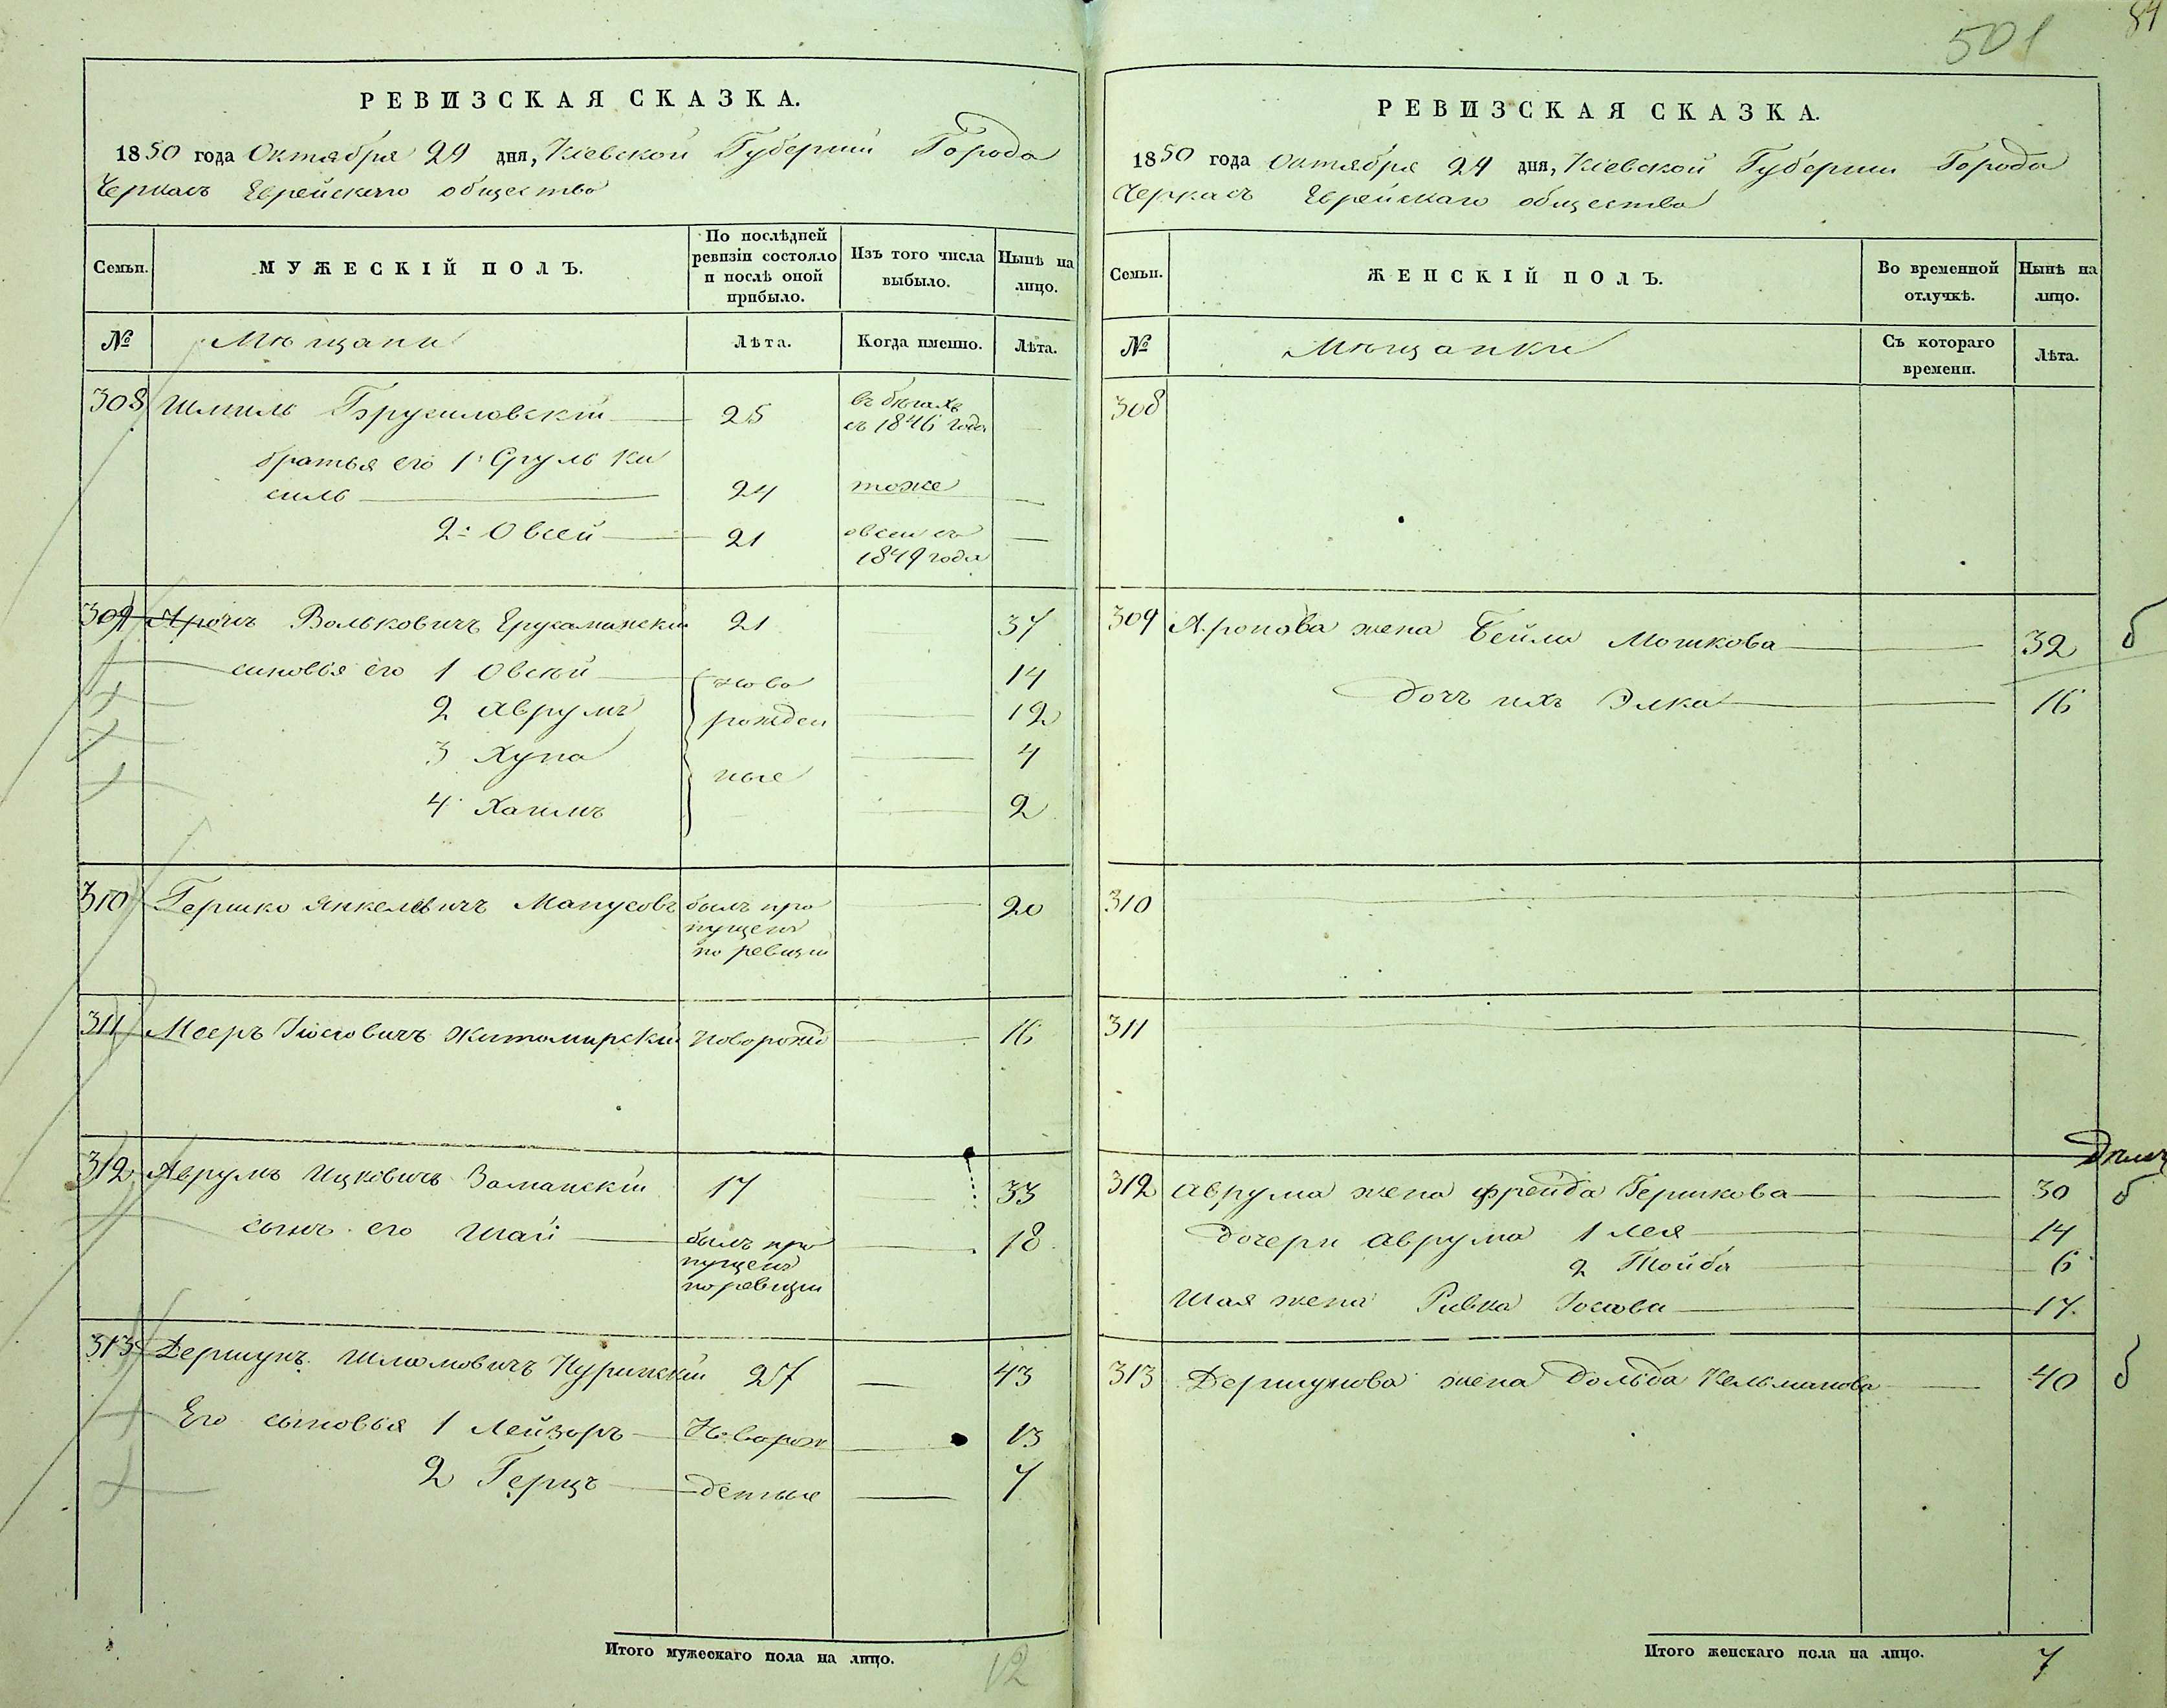 501
84
РЕВИЗСКАЯ СКАЗКА.
1850 года Октября 29 дня, Кіевской Губерніи Города
Черкасъ Еврейскаго общества
Семьи.
МУЖЕСКІЙ ПОЛЪ.
По послѣдней
ревизіи состояло
и послѣ оной
прибыло.
Изъ того числа
выбыло.
Нынѣ на
лицо.
№
Мѣщани
Лѣта.
Когда именно.
Лѣта.
308 Шмиль Брусиловскій 25
въ бѣгахъ
съ 1846 года
братья его 1. Сруль Ки
силь 24 тоже
2: Овсей 21
овсеи съ
1849 года
309 Аронъ Вольковичъ 21 37
сыновья его 1 Овсѣй 14
2 Аврумъ 12
3 Хуна 4
4 Хаимъ 2
ново
рожден
ные
310 Гершко Янкелевичъ Манусовъ 20
былъ про
пущенъ
по ревизіи
311 Мееръ Іосіовичъ Житомирскій новорожд 16
312 Аврумъ Ицковичъ Заманскій 17 33
сынъ его Шай 18
былъ про
пущенъ
по ревизіи
313 Дершунъ Шлиомовичъ Куринскій 27 43
Его сыновья 1 Лейзоръ Новорож 13
2 Герцъ денные 7
Итого мужескаго пола на лицо.
12
РЕВИЗСКАЯ СКАЗКА.
1850 года Октября 29 дня, Кіевской Губерніи Города
Черкасъ Еврейскаго общества
Семьи.
ЖЕНСКІЙ ПОЛЪ.
Во временной
отлучкѣ.
Нынѣ на
лицо.
№
Мѣщанки
Съ котораго
времени.
Лѣта.
308
309 Аронова жена Бейла Мошкова 32 б
дочь ихъ Элка 16
310
311
312 Аврума жена Фрейда Гершкова 30 б
Дочери Аврума 1 Лея 14
2 Тойба 6
Шая жена Ривка Іосіова 17.
313 Дершунова жена Гольда Кельманова 40 б
Итого женскаго пола на лицо. 7